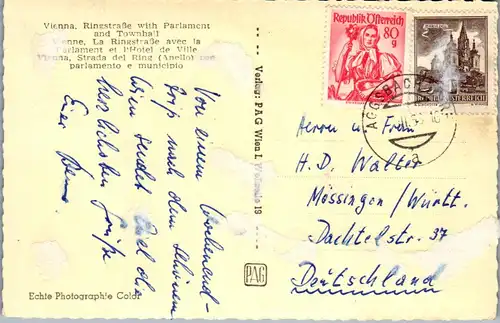 Vienna, Ringstraße with Parlament
and Townhall
Vienne, La Ringstraße avec la
Parlament et l'Hôtel de Ville
Vienna, Strada del Ring (Anello) con
parlamento e municipio
Von einem Wochenend-
trip nach dem schönen
Wien sendet Euch die
herzlichsten Grüße
Euer
Echte Photographie Color
Verlag: PAG Wien I,
19
PAG
Republik Österreich
80
g
ÖSTERREICH
AGGSBACH
a
Herrn und Frau
H. D. Walter
Mössingen / Württ.
Dachtelstr. 37
Deutschland